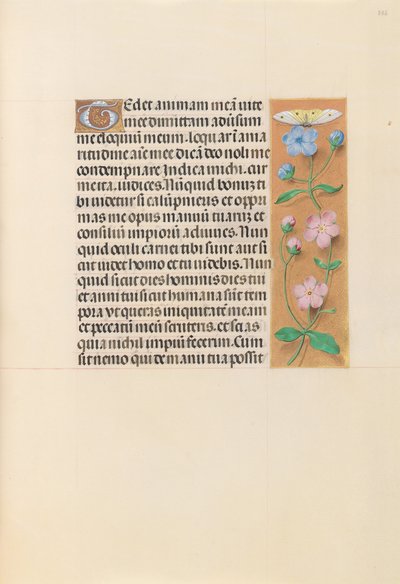 Tedet animam meā vite
mee dimittam adūsum
me eloquiū meum. loquar ī ama
ritudine aīe mee dicā deo noli me
condempnare Indica michi. cur
me ita. iudices. Nū quid bonū ti
bi videtur si calūpnieris et oppri
mas me opus manuū tuarū et
consiliū impiorū adiuves. Nun
quid oculi carnei tibi sunt aut si
cut videt homo et tu videbis. Nun
quid sicut dies hominis dies tui
et anni tui sicut humana sūt tem
pora Ut queras iniquitatē meam
et peccatū meū scruteris. et scias
quia nichil impiū fecerim. Cum
sit nemo qui de manu tua possit